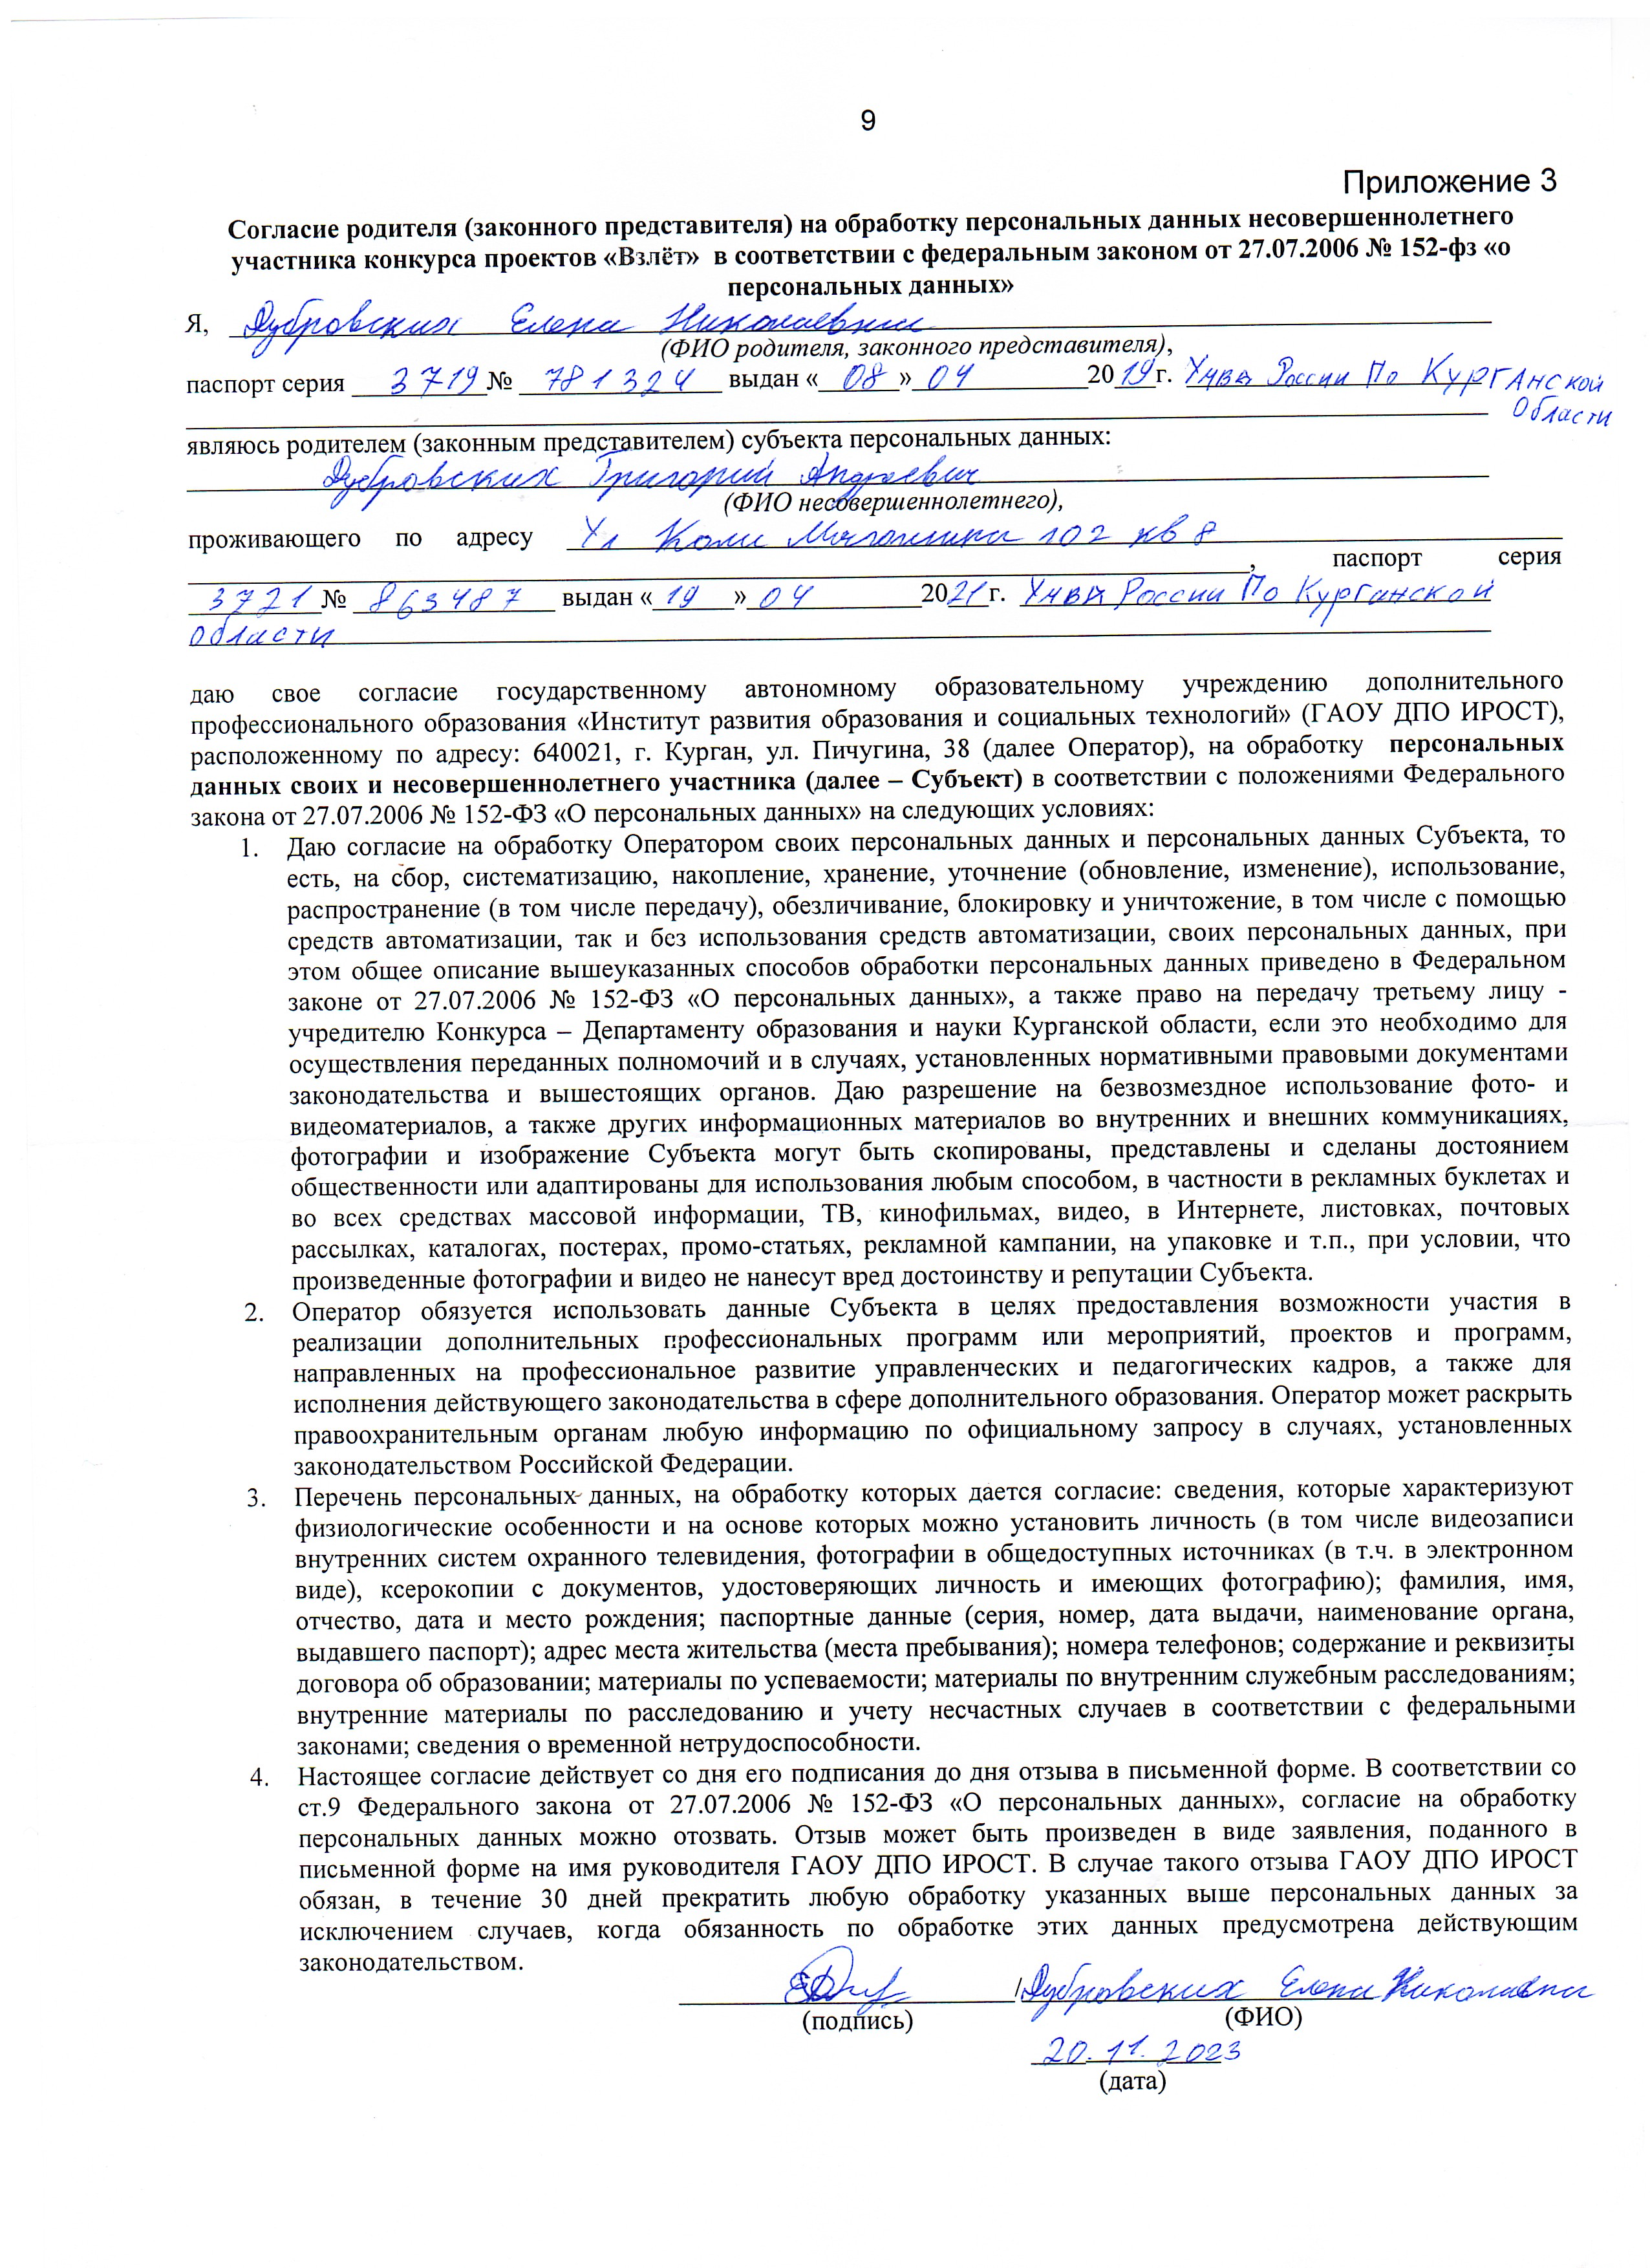 9
Приложение 3
Согласие родителя (законного представителя) на обработку персональных данных несовершеннолетнего
участника конкурса проектов «Взлёт» в соответствии с федеральным законом от 27.07.2006 № 152-фз «о
персональных данных»
Я, Дубровских Елена Николаевна
(ФИО родителя, законного представителя),
паспорт серия 3719 № 781324 выдан «08» 04 2019г. УМВД России По Курганской
Области
являюсь родителем (законным представителем) субъекта персональных данных:
Дубровских Григорий Андреевич
(ФИО несовершеннолетнего),
проживающего по адресу Ул Коли Мяготина 102 кв 8
, паспорт серия
3721 № 863487 выдан «19» 04 2021г. УМВД России По Курганской
области
даю свое согласие государственному автономному образовательному учреждению дополнительного
профессионального образования «Институт развития образования и социальных технологий» (ГАОУ ДПО ИРОСТ),
расположенному по адресу: 640021, г. Курган, ул. Пичугина, 38 (далее Оператор), на обработку персональных
данных своих и несовершеннолетнего участника (далее – Субъект) в соответствии с положениями Федерального
закона от 27.07.2006 № 152-ФЗ «О персональных данных» на следующих условиях:
1. Даю согласие на обработку Оператором своих персональных данных и персональных данных Субъекта, то
есть, на сбор, систематизацию, накопление, хранение, уточнение (обновление, изменение), использование,
распространение (в том числе передачу), обезличивание, блокировку и уничтожение, в том числе с помощью
средств автоматизации, так и без использования средств автоматизации, своих персональных данных, при
этом общее описание вышеуказанных способов обработки персональных данных приведено в Федеральном
законе от 27.07.2006 № 152-ФЗ «О персональных данных», а также право на передачу третьему лицу -
учредителю Конкурса – Департаменту образования и науки Курганской области, если это необходимо для
осуществления переданных полномочий и в случаях, установленных нормативными правовыми документами
законодательства и вышестоящих органов. Даю разрешение на безвозмездное использование фото- и
видеоматериалов, а также других информационных материалов во внутренних и внешних коммуникациях,
фотографии и изображение Субъекта могут быть скопированы, представлены и сделаны достоянием
общественности или адаптированы для использования любым способом, в частности в рекламных буклетах и
во всех средствах массовой информации, ТВ, кинофильмах, видео, в Интернете, листовках, почтовых
рассылках, каталогах, постерах, промо-статьях, рекламной кампании, на упаковке и т.п., при условии, что
произведенные фотографии и видео не нанесут вред достоинству и репутации Субъекта.
2. Оператор обязуется использовать данные Субъекта в целях предоставления возможности участия в
реализации дополнительных профессиональных программ или мероприятий, проектов и программ,
направленных на профессиональное развитие управленческих и педагогических кадров, а также для
исполнения действующего законодательства в сфере дополнительного образования. Оператор может раскрыть
правоохранительным органам любую информацию по официальному запросу в случаях, установленных
законодательством Российской Федерации.
3. Перечень персональных данных, на обработку которых дается согласие: сведения, которые характеризуют
физиологические особенности и на основе которых можно установить личность (в том числе видеозаписи
внутренних систем охранного телевидения, фотографии в общедоступных источниках (в т.ч. в электронном
виде), ксерокопии с документов, удостоверяющих личность и имеющих фотографию); фамилия, имя,
отчество, дата и место рождения; паспортные данные (серия, номер, дата выдачи, наименование органа,
выдавшего паспорт); адрес места жительства (места пребывания); номера телефонов; содержание и реквизиты
договора об образовании; материалы по успеваемости; материалы по внутренним служебным расследованиям;
внутренние материалы по расследованию и учету несчастных случаев в соответствии с федеральными
законами; сведения о временной нетрудоспособности.
4. Настоящее согласие действует со дня его подписания до дня отзыва в письменной форме. В соответствии со
ст.9 Федерального закона от 27.07.2006 № 152-ФЗ «О персональных данных», согласие на обработку
персональных данных можно отозвать. Отзыв может быть произведен в виде заявления, поданного в
письменной форме на имя руководителя ГАОУ ДПО ИРОСТ. В случае такого отзыва ГАОУ ДПО ИРОСТ
обязан, в течение 30 дней прекратить любую обработку указанных выше персональных данных за
исключением случаев, когда обязанность по обработке этих данных предусмотрена действующим
законодательством.
/Дубровских Елена Николаевна
(подпись) (ФИО)
20.11.2023
(дата)